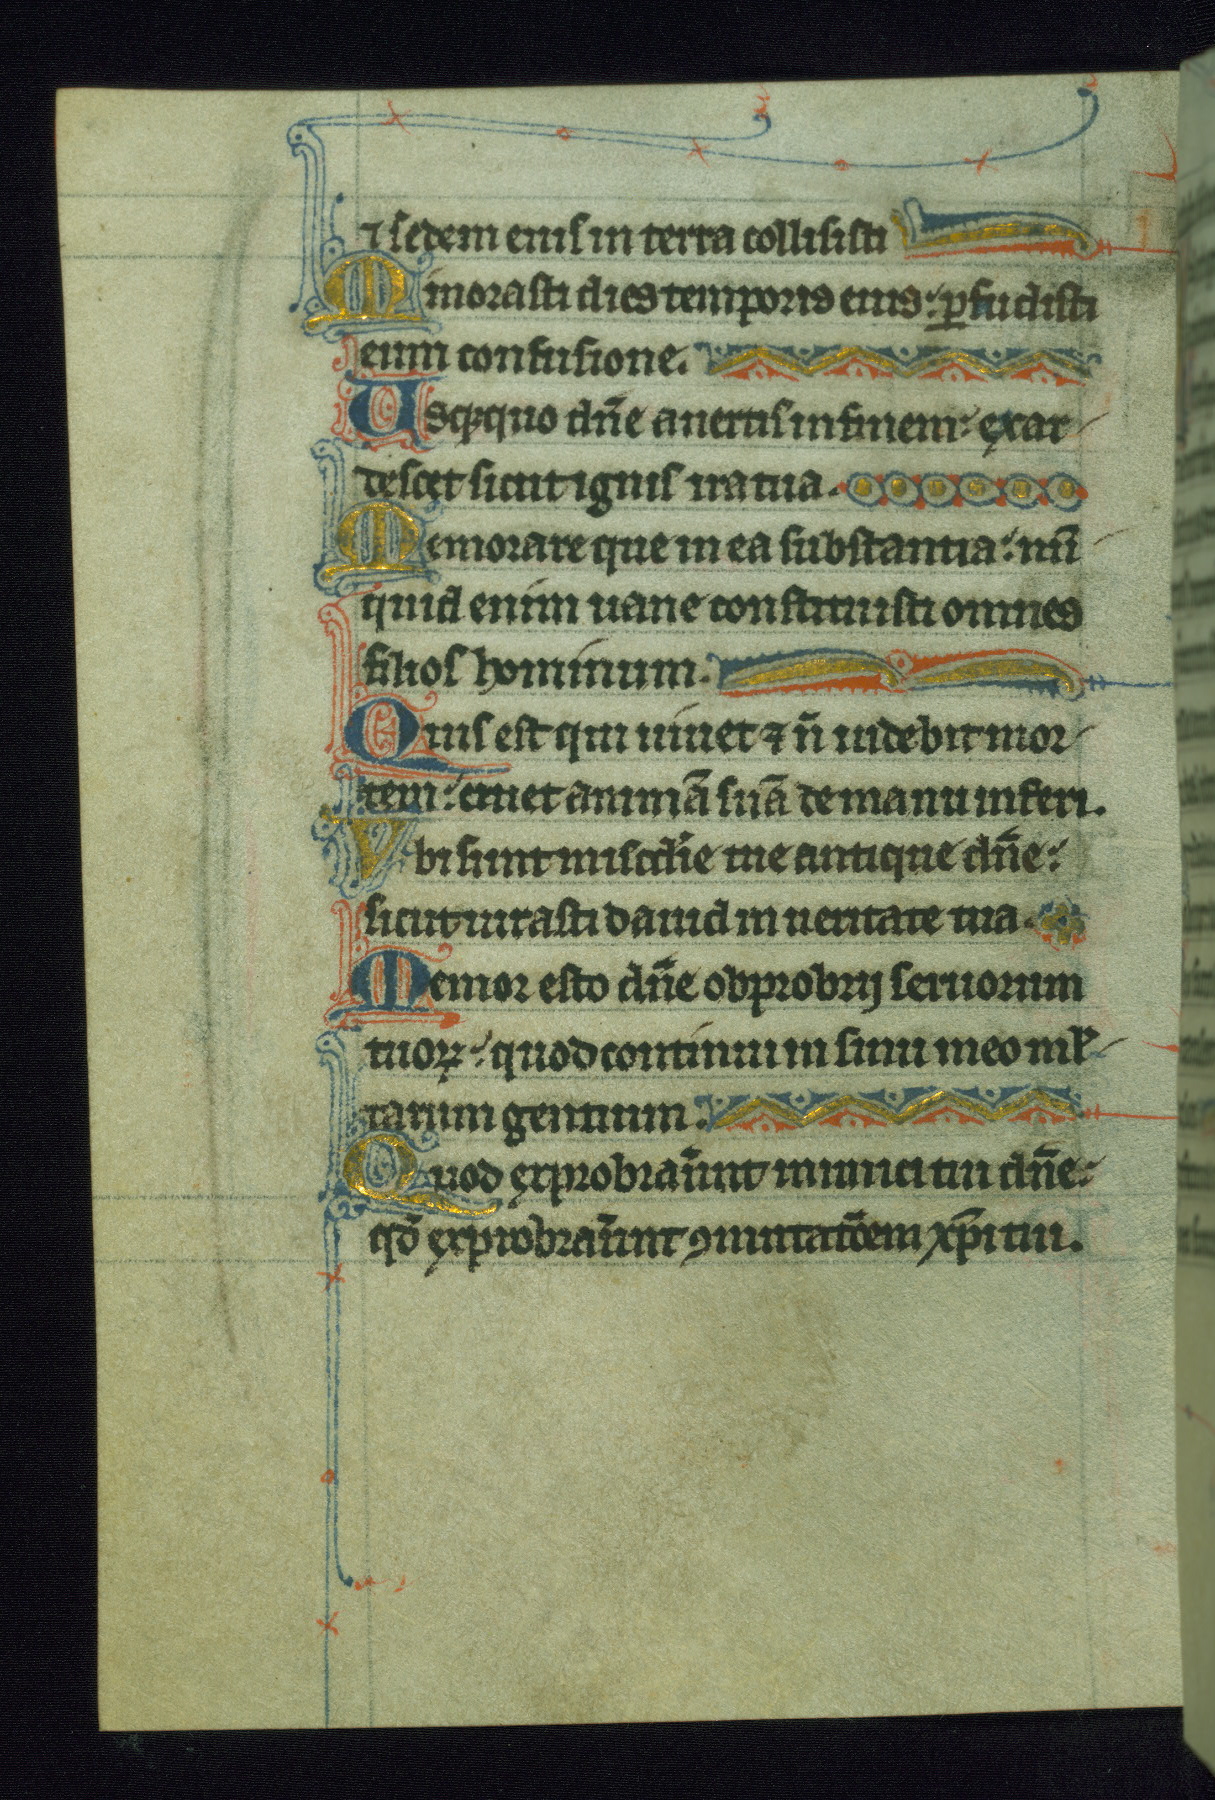 ⁊ sedem eius in terra collisisti
Minorasti dies temporis eius: ꝑfudisti
eum confusione.
Usqꝫquo dn̄e auertis in finem: exar
descet sicut ignis ira tua.
Memorare que mea substantia: nū
quid enim uane constituisti omnes
filios hominum.
Quis est qui uiuet ⁊ n̄ uidebit mor
tem: eruet animā suā de manu inferi.
Vbi sunt misc̄die tue antique dn̄e:
sicut iurasti dauid in ueritate tua.
Memor esto dn̄e obprobrij seruorum
tuoꝝ: quod continui in sinu meo ml̓
tarum gentium.
Quod exprobrauer̄unt inimici tui dn̄e:
qd̄ exprobrauer̄unt ꝯmutatōem xp̄i tui.